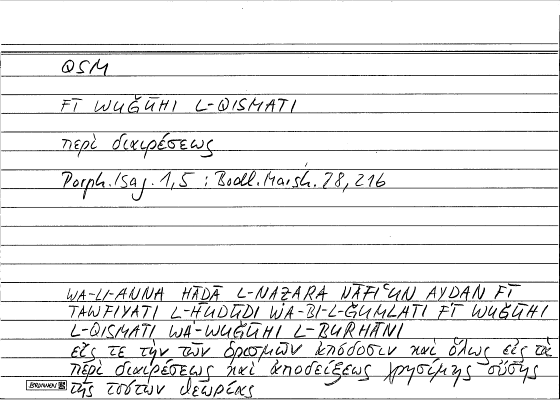 QSM
FĪ WUǦŪHI L-QISMATI
περὶ διαιρέσεως
Porph. Isag. 1,5 ; Bodl. Marsh. 28, 216
WA-LI-ANNA HĀḎĀ L-NAẒARA NĀFIʿUN AYḌAN FĪ
TAWFIYATI L-ḤUDŪDI WA-BI-L-ǦUMLATI FĪ WUǦŪHI
L-QISMATI WA-WUǦŪHI L-BURHĀNI
εἴς τε τὴν τῶν ὁρισμῶν ἀπόδοσιν καὶ ὅλως εἰς τὰ
περὶ διαιρέσεως καὶ ἀποδείξεως χρησίμης οὔσης
τῆς τούτων θεωρίας